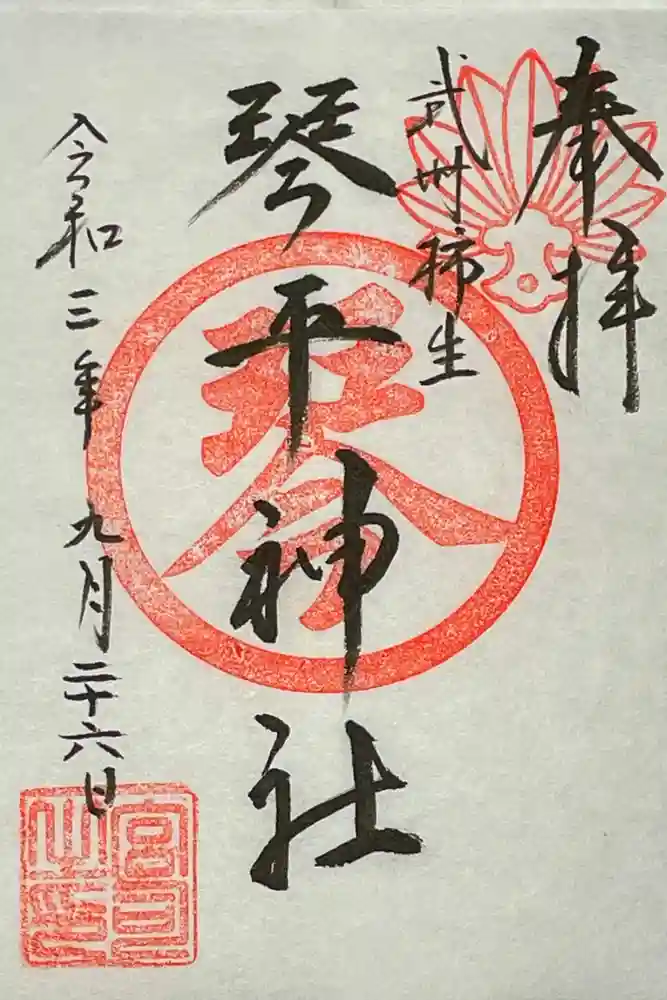 奉拝
武州柿生
琴平神社
琴
令和三年九月二十六日
宮司之印